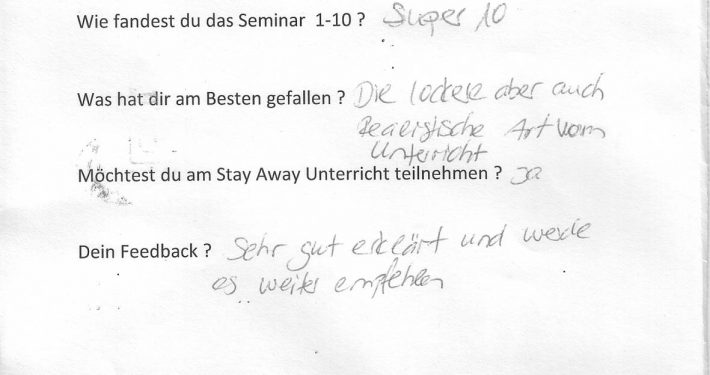 Wie fandest du das Seminar 1-10 ? Super 10
Was hat dir am Besten gefallen ? Die lockere aber auch
Realistische Art vom
Unterricht
Möchtest du am Stay Away Unterricht teilnehmen ? Ja
Dein Feedback ? Sehr gut erklärt und werde
es weiter empfehlen